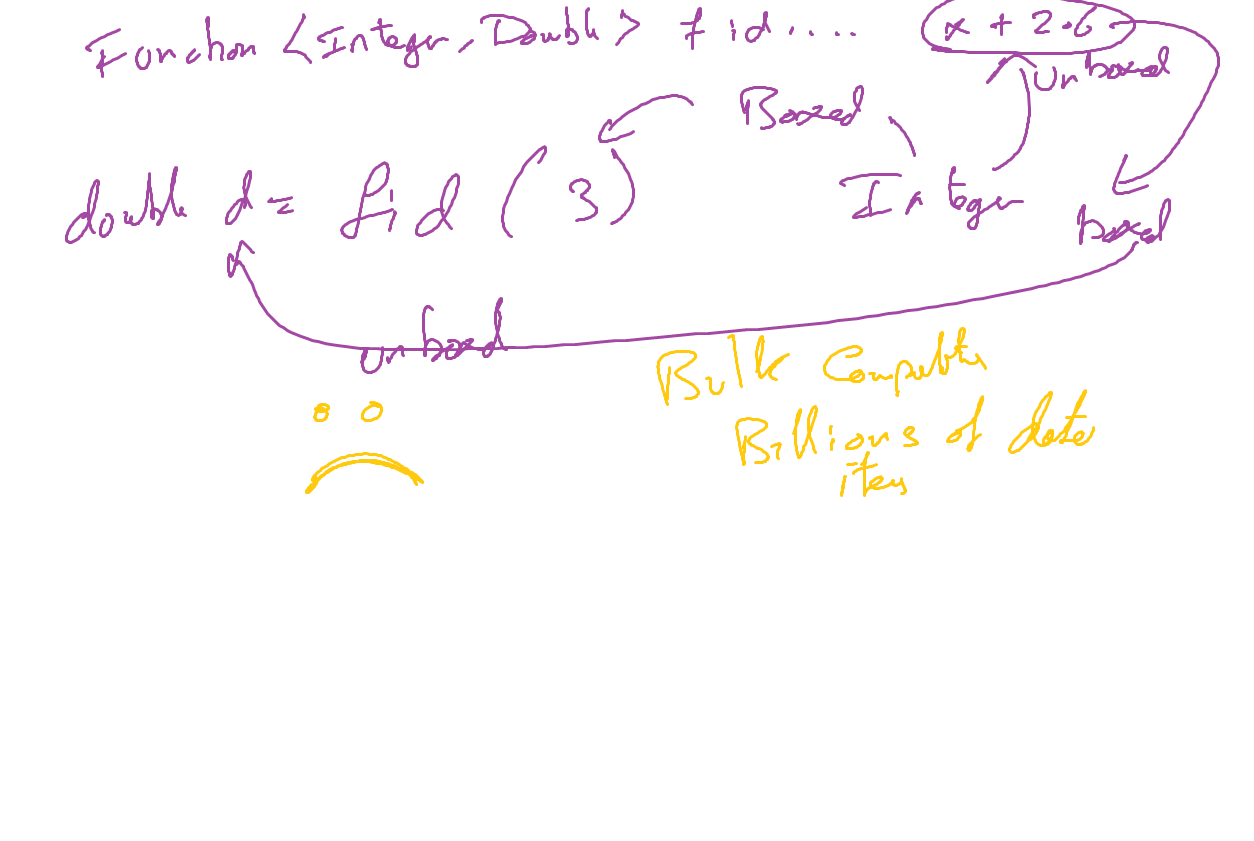 Function <Integer, Double> fid.... x + 2.6
Unboxed
Boxed
double d = fid ( 3 ) Integer boxed
unboxed
Bulk Computer
Billions of data
items